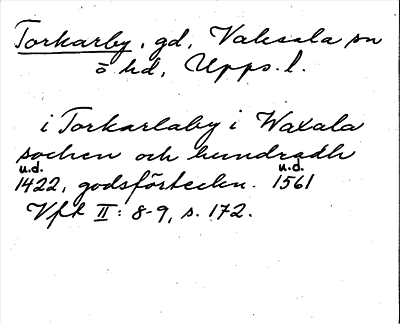 Torkarby, gd, Vaksala sn
ö hd, Upps. l.
i Torkarlaby i Waxala
sochen och hundradh
u.d. u.d.
1422, godsförteckn. 1561
Vft II: 8-9, s. 172.